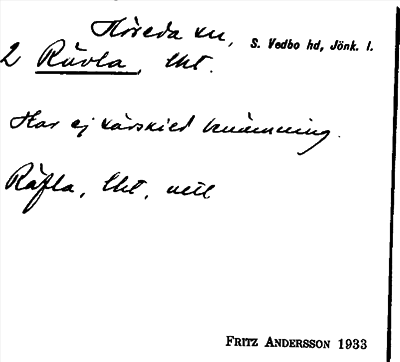 Höreda sn, S. Vedbo hd, Jönk. l.
2 Rävla, lht.
Har ej särskild benämning.
Räfla, lht,
FRITZ ANDERSSON 1933